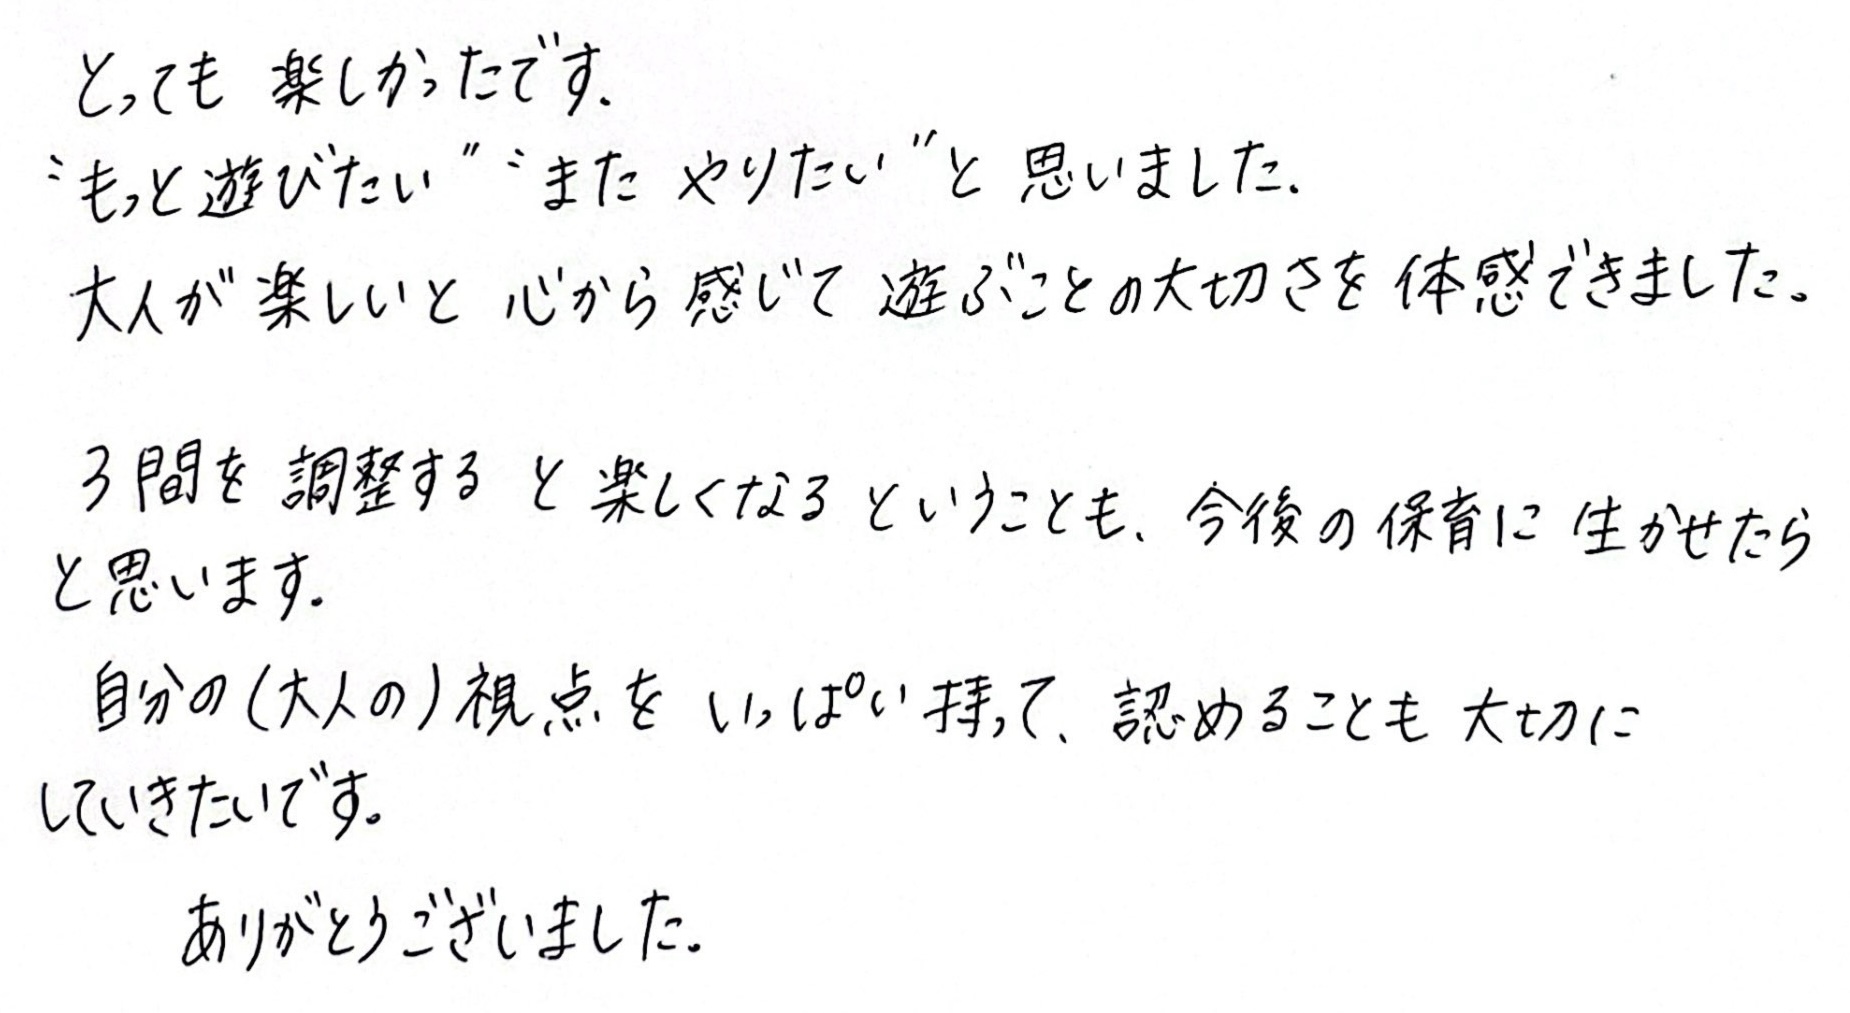 とっても 楽しかったです.
〝もっと遊びたい〞〝また やりたい〞と 思いました.
大人が楽しいと 心から感じて 遊ぶことの大切さを 体感できました。
3間を 調整すると 楽しくなる ということも、今後の保育に 生かせたら
と思います.
自分の(大人の)視点を いっぱい持って、認めることも 大切に
していきたいです。
ありがとうございました。